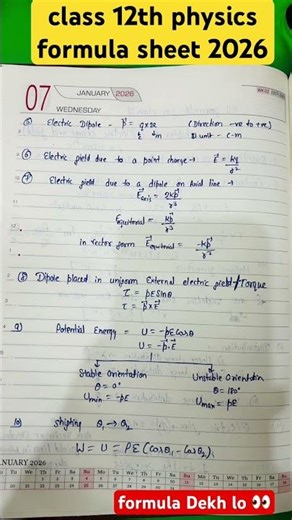 class 12th physics
formula sheet 2026
07
JANUARY 2026
WEDNESDAY
⑤ Electric Dipole - P⃗ = q×2l (Direction -ve to +ve)
unit - C-m
⑥ Electric field due to a point charge → E⃗ = kq/r²
⑦ Electric field due to a dipole on Axial line →
E⃗axis = 2kp⃗/r³
Equitorial = kp⃗/r³
in vector form E⃗equitorial = -kp⃗/r³
⑧ Dipole placed in uniform External electric field / Torque
τ = PE sinθ
τ = p⃗×E⃗
9) Potential Energy = U = -PE cosθ
U = -p⃗.E⃗
Stable Orientation Unstable orientation
θ = 0° θ = 180°
Umin = -PE Umax = PE
10) shifting θ₁ → θ₂
W = U = PE (cosθ₁ - cosθ₂)
JANUARY 2026
formula Dekh lo 👀